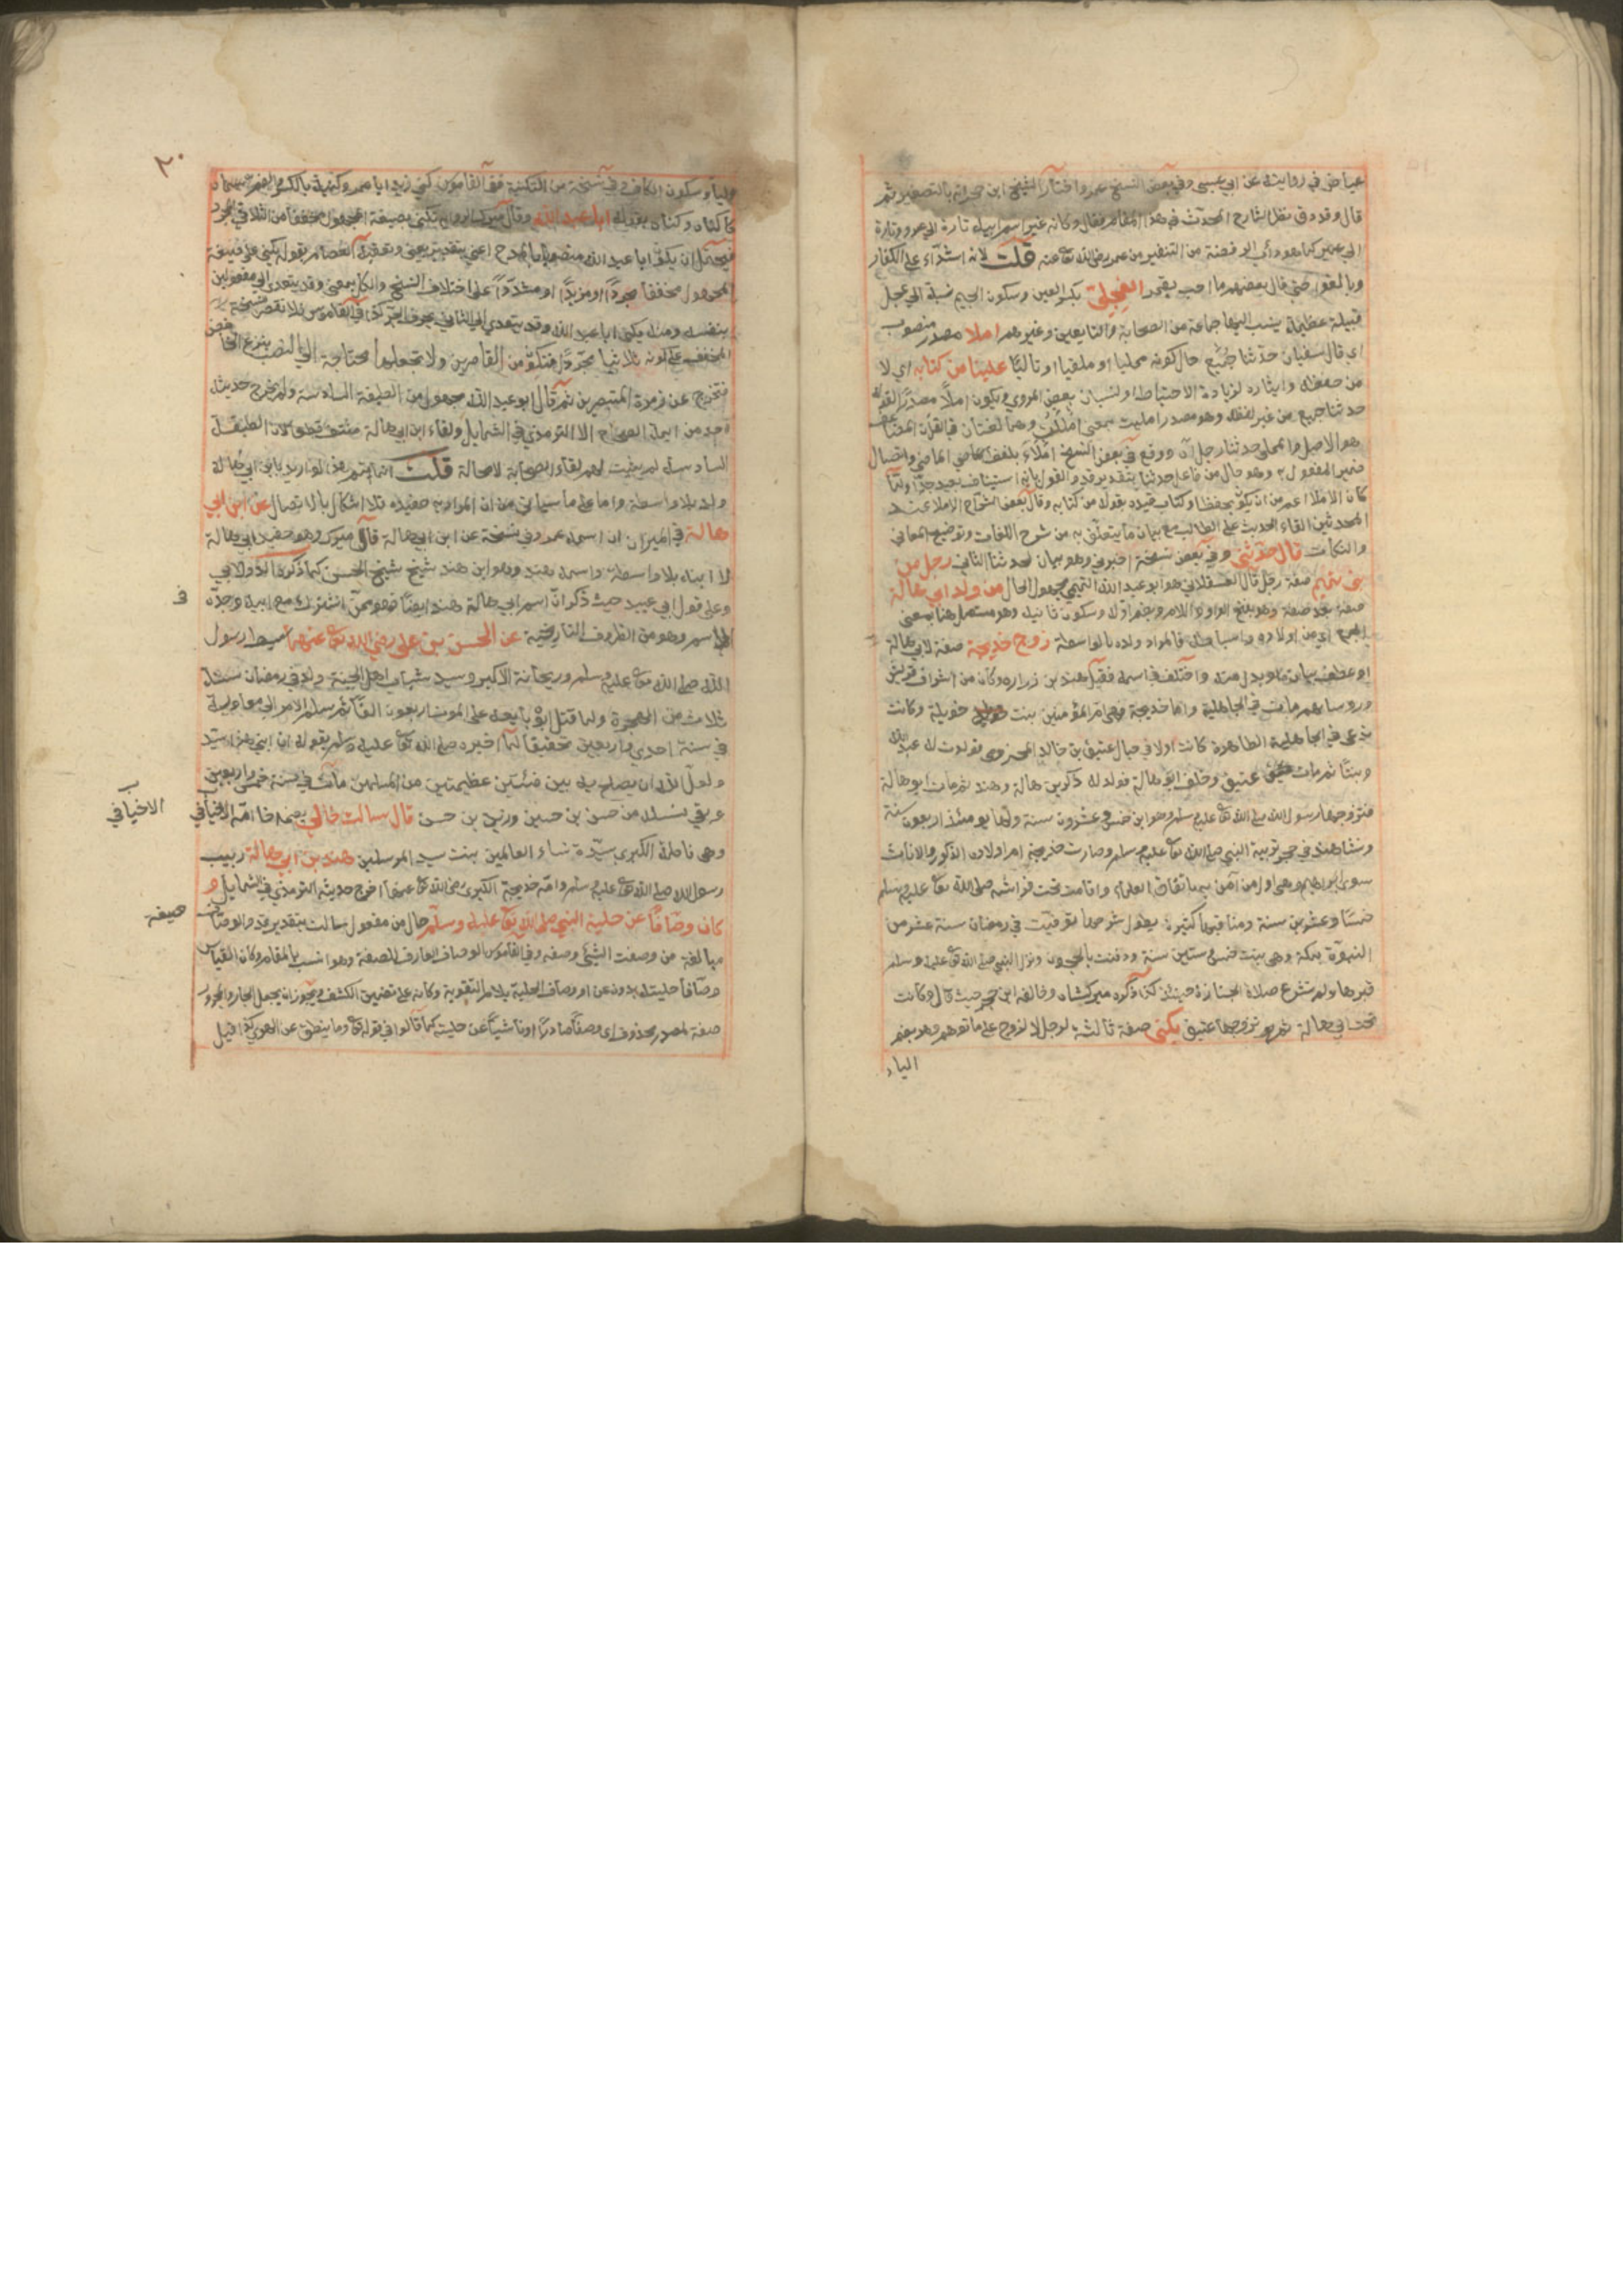 عياض في روايته عن ابي عيسى وفي بعض النسخ عمر واختار الشيخ ابن حجر انه بالتصغير ثم
قال وقد وقع نقل الشارح المحدث في هذا المقام فقال وكانه غير اسم ابيه تارة الى عمرو وتارة
الى عمير كما هو دأب الرافضة من التنفير من عمر رضي الله تعا عنه قلت لانه اشداء على الكفار
حتى قال بعضهم ما احب بعمر العجلي بكسر العين وسكون الجيم نسبة الى عجل
قبيلة عظيمة ينسب اليها جماعة من الصحابة والتابعين وغيرهم املا مصدر منصوب
اي قال سفيان حدثنا جميع حال كونه ممليا او ملقيا او تاليا علينا من كتابه اي لا
من حفظه وايثاره لزيادة الاحتياط او لنسيان بعض المروي ويكون املأ مصدرا لقوله
حدثنا جميع من غير لفظه وهو مصدر امليت بمعنى امللت وهما لغتان في القرآن
هو الاصل وا لمملى حدثنا رجل آن ووقع في بعض النسخ املاءً بلفظ الماضي واتصال
ضمير المفعول به وهو حال من فاعل حدثنا بتقدير قد والقول بانه استيناف بعيد جدا ولما
كان الاملا اعم من ان يكون بحفظا وكتاب قيده بقوله من كتابه وقال بعض الشراح الاملا عند
المحدثين القاء الحديث على الطالب مع بيان ما يتعلق به من شرح اللغات وتوضيح المعاني
والنكات قال حدثني وفي بعض نسخة اخبرني وهو بيان لحدثنا الثاني رجل من
بني تميم صفة رجل قال العسقلاني هو ابو عبد الله التميمي مجهول الحال من ولد ابي هالة
صفة بعد صفة وهو بفتح الواو واللام وبضم اوله وسكون ثانيه وهو مستعمل هنا بمعنى
الجمع اي من اولاده واسباطه فالمراد ولده بالواسطة زوج خديجة صفة لابي هالة
او عطف بيان له او بدل منه واختلف في اسمه فقيل هند بن زراره وكان من اشراف قريش
ورؤسايهم مات في الجاهلية واما خديجة فهي ام المؤمنين بنت خويلد وكانت
تدعى في الجاهلية الطاهرة كانت اولا في حبال عتيق بن خالد المخزومي فولدت له عبد الله
وبنتا ثم مات عتيق وخلف ابو هالة فولد له ذكرين هالة وهند ثم مات ابو هالة
فتزوجها رسول الله صلى الله تعا عليه وسلم وهو ابن خمس وعشرون سنة ولها يومئذ اربعون سنة
ونشا هند في حجر تربية النبي صلى الله تعا عليه وسلم وصارت خديجة ام اولاده الذكور والاناث
سوى ابراهيم وهي اول من آمن به باتفاق العلماء واقامت تحت فراشه صلى الله تعا عليه وسلم
خمسا وعشرين سنة ومناقبها كثيرة يطول شرحها توفيت في رمضان سنة عشر من
النبوة بمكة وهي بنت خمس وستين سنة ودفنت بالحجون ونزل النبي صلى الله تعا عليه وسلم
قبرها ولم تشرع صلاة الجنازة حينئذ كذا ذكره ميركشاه وخالفه ابن حجر حيث قال وكانت
تحت ابي هالة ثم تزوجها عتيق يكنى صفة ثالثة لرجل لا لزوج على ما توهم وهو بضم
الياء
٢٠
الياء وسكون الكاف وفي نسخة من التكنية ففي القاموس كنى زيد ابا عمرو وكنية بالكسر والضم
اباه عبد الله وقال ميرك يكنى بصيغة المجهول مخففا من الثلاثي المجرد
فيحتمل ان يكون ابا عبد الله منصوبا بالمدح اعني بتقدير يعني وتعقبه العصام بقوله يكنى على صيغة
المجهول مخففا مجردا او مزيدا او مشددا على اختلاف النسخ والكل بمعنى وقد يتعدى الى مفعولين
بنفسه ومنه يكنى ابا عبد الله وقد يتعدى الى الثاني بحرف الجر كذا في القاموس
المخفف على كونه ثلاثيا مجردا فتكون من القاصرين ولا تجعلها محتاجة الى النصب بنزع الخافض
فتخرج عن زمرة المتبصرين ثم قال ابو عبد الله مجهول من الطبقة السادسة ولم يخرج حديثه
احد من ايمة الصحاح الا الترمذي في الشمايل ولقاء ابن ابي هالة منتف قطعا لان الطبقة
السادسة لم يثبت لهم لقاء الصحابة لا محالة قلت انما يتم هذا لو اريد بابن ابي هالة
ولده بلا واسطة واما على ما سياتي من ان المراد به حفيده فلا اشكال بالاتصال عن ابن ابي
هالة في الميزان ان اسمه عمر وفي نسخة عن ابن ابي هالة قال ميرك وهو حفيد ابي هالة
لا ابنه بلا واسطة واسمه هند وهو ابن هند شيخ شيخ الحسن كما ذكره الدولابي
وعلى قول ابي عبيد حيث ذكر ان اسم ابي هالة هند ايضا فهو ممن اشترك مع ابيه وجده
في الاسم وهو من الظروف التاريخية عن الحسن بن علي رضي الله تعا عنهما سبط رسول
الله صلى الله تعا عليه وسلم وريحانة الاكبر وسيد شباب اهل الجنة ولد في رمضان سنة
ثلاث من الهجرة ولما قتل ابوه بايعه على الموت اربعون الفا ثم سلم الامر الى معاوية
في سنة احدى واربعين تحقيقا لما اخبره صلى الله تعا عليه وسلم بقوله ان ابني هذا سيد
ولعل الله ان يصلح به بين فئتين عظيمتين من المسلمين مات في سنة خمس واربعين
وبقي نسله من حسن بن حسين وزيد بن حسن قال سالت خالي
وهي فاطمة الكبرى سيدة نساء العالمين بنت سيد المرسلين هند بن ابي هالة ربيب
رسول الله صلى الله تعا عليه وسلم وامه خديجة الكبرى رضي الله تعا عنها اخرج حديثه الترمذي في الشمايل و
كان وصافا عن حلية النبي صلى الله تعا عليه وسلم حال من مفعول سالت بتقدير قد والوصاف
مبالغة من وصفت الشئ وصفه وفي القاموس الوصاف العارف للصفة وهو انسب بالمقام وكان القياس
وصافا حليته بدون عن او وصاف الحلية بلام التقوية وكانه على تضمين الكشف ويجوز ان يجعل الجار والمجرور
صفة لمصدر محذوف اي وصفا صادرا او ناشيا عن حليته كما قالوا في قوله تعا وما ينطق عن الهوى كذا قيل
ف
الاخيافي
صيغة